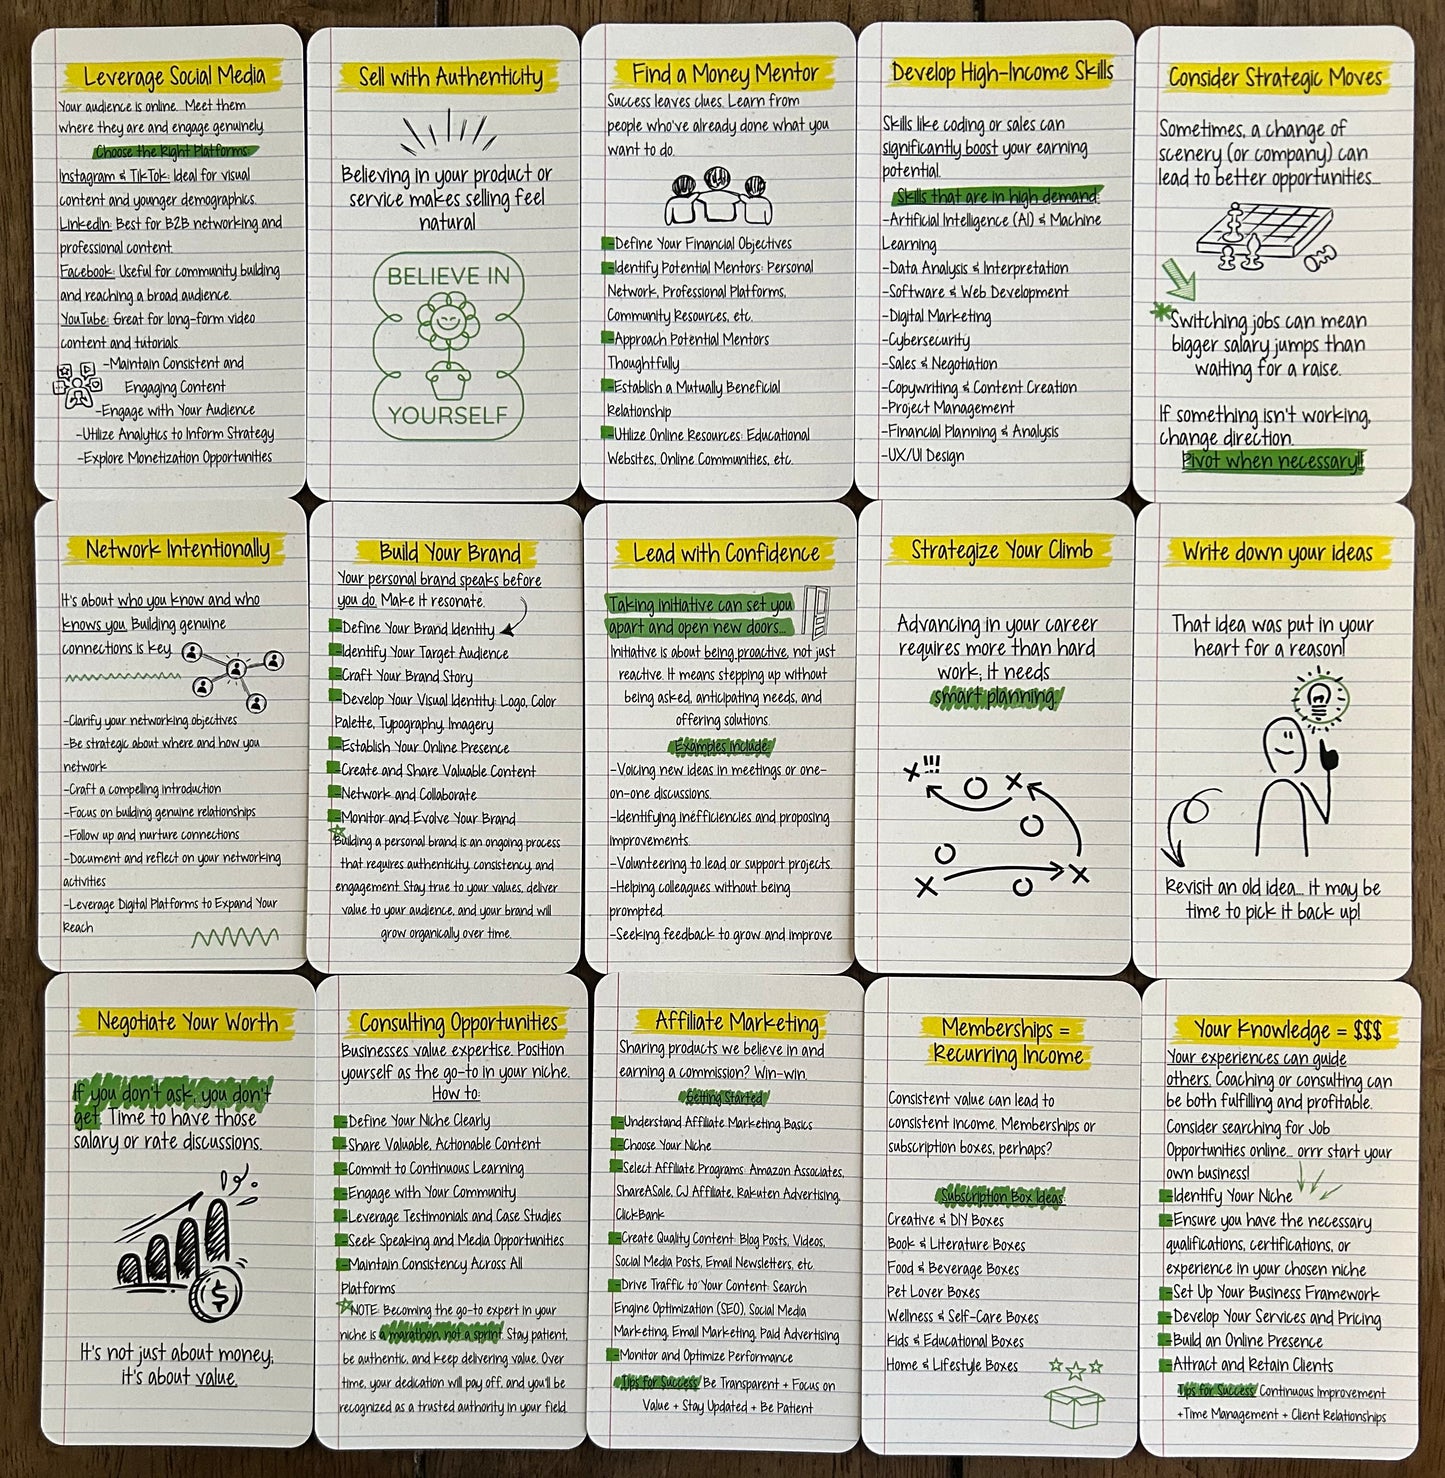 Leverage Social Media
Your audience is online. Meet them
where they are and engage genuinely.
Choose the Right Platforms:
Instagram & TikTok: Ideal for visual
content and younger demographics.
LinkedIn: Best for B2B networking and
professional content.
Facebook: Useful for community building
and reaching a broad audience.
YouTube: Great for long-form video
content and tutorials.
-Maintain Consistent and
Engaging Content
-Engage with Your Audience
-Utilize Analytics to Inform Strategy
-Explore Monetization Opportunities
Sell with Authenticity
Believing in your product or
service makes selling feel
natural
BELIEVE IN
YOURSELF
Find a Money Mentor
Success leaves clues. Learn from
people who've already done what you
want to do.
-Define Your Financial Objectives
-Identify Potential Mentors: Personal
Network, Professional Platforms,
Community Resources, etc.
-Approach Potential Mentors
Thoughtfully
-Establish a Mutually Beneficial
Relationship
-Utilize Online Resources: Educational
Websites, Online Communities, etc.
Develop High-Income Skills
Skills like coding or sales can
significantly boost your earning
potential.
Skills that are in high demand:
-Artificial Intelligence (AI) & Machine
Learning
-Data Analysis & Interpretation
-Software & Web Development
-Digital Marketing
-Cybersecurity
-Sales & Negotiation
-Copywriting & Content Creation
-Project Management
-Financial Planning & Analysis
-UX/UI Design
Consider Strategic Moves
Sometimes, a change of
scenery (or company) can
lead to better opportunities...
*Switching jobs can mean
bigger salary jumps than
waiting for a raise.
If something isn't working,
change direction.
Pivot when necessary!!
Network Intentionally
It's about who you know and who
knows you. Building genuine
connections is key.
-Clarify your networking objectives
-Be strategic about where and how you
network
-Craft a compelling introduction
-Focus on building genuine relationships
-Follow up and nurture connections
-Document and reflect on your networking
activities
-Leverage Digital Platforms to Expand Your
Reach
Build Your Brand
Your personal brand speaks before
you do. Make it resonate.
-Define Your Brand Identity
-Identify Your Target Audience
-Craft Your Brand Story
-Develop Your Visual Identity: Logo, Color
Palette, Typography, Imagery
-Establish Your Online Presence
-Create and Share Valuable Content
-Network and Collaborate
-Monitor and Evolve Your Brand
Building a personal brand is an ongoing process
that requires authenticity, consistency, and
engagement. Stay true to your values, deliver
value to your audience, and your brand will
grow organically over time.
Lead with Confidence
Taking initiative can set you
apart and open new doors...
Initiative is about being proactive, not just
reactive. It means stepping up without
being asked, anticipating needs, and
offering solutions.
Examples Include:
-Voicing new ideas in meetings or one-
on-one discussions.
-Identifying inefficiencies and proposing
improvements.
-Volunteering to lead or support projects.
-Helping colleagues without being
prompted.
-Seeking feedback to grow and improve
Strategize Your Climb
Advancing in your career
requires more than hard
work; it needs
smart planning!
X !!!
O X
O
O
X O X
Write down your ideas
That idea was put in your
heart for a reason!
Revisit an old idea... it may be
time to pick it back up!
Negotiate Your Worth
If you don't ask, you don't
get. Time to have those
salary or rate discussions.
$
It's not just about money;
it's about value.
Consulting Opportunities
Businesses value expertise. Position
yourself as the go-to in your niche.
How to:
-Define Your Niche Clearly
-Share Valuable, Actionable Content
-Commit to Continuous Learning
-Engage with Your Community
-Leverage Testimonials and Case Studies
-Seek Speaking and Media Opportunities
-Maintain Consistency Across All
Platforms
NOTE: Becoming the go-to expert in your
niche is a marathon, not a sprint. Stay patient,
be authentic, and keep delivering value. Over
time, your dedication will pay off, and you'll be
recognized as a trusted authority in your field.
Affiliate Marketing
Sharing products we believe in and
earning a commission? Win-win.
Getting Started:
-Understand Affiliate Marketing Basics
-Choose Your Niche
-Select Affiliate Programs: Amazon Associates,
ShareASale, CJ Affiliate, Rakuten Advertising,
ClickBank
-Create Quality Content: Blog Posts, Videos,
Social Media Posts, Email Newsletters, etc.
-Drive Traffic to Your Content: Search
Engine Optimization (SEO), Social Media
Marketing, Email Marketing, Paid Advertising
-Monitor and Optimize Performance
Tips for Success: Be Transparent + Focus on
Value + Stay Updated + Be Patient
Memberships =
Recurring Income
Consistent value can lead to
consistent income. Memberships or
subscription boxes, perhaps?
Subscription Box Ideas:
Creative & DIY Boxes
Book & Literature Boxes
Food & Beverage Boxes
Pet Lover Boxes
Wellness & Self-Care Boxes
Kids & Educational Boxes
Home & Lifestyle Boxes
Your Knowledge = $$$
Your experiences can guide
others. Coaching or consulting can
be both fulfilling and profitable.
Consider searching for Job
Opportunities online... orrr start your
own business!
-Identify Your Niche
-Ensure you have the necessary
qualifications, certifications, or
experience in your chosen niche
-Set Up Your Business Framework
-Develop Your Services and Pricing
-Build an Online Presence
-Attract and Retain Clients
Tips for Success: Continuous Improvement
+Time Management + Client Relationships